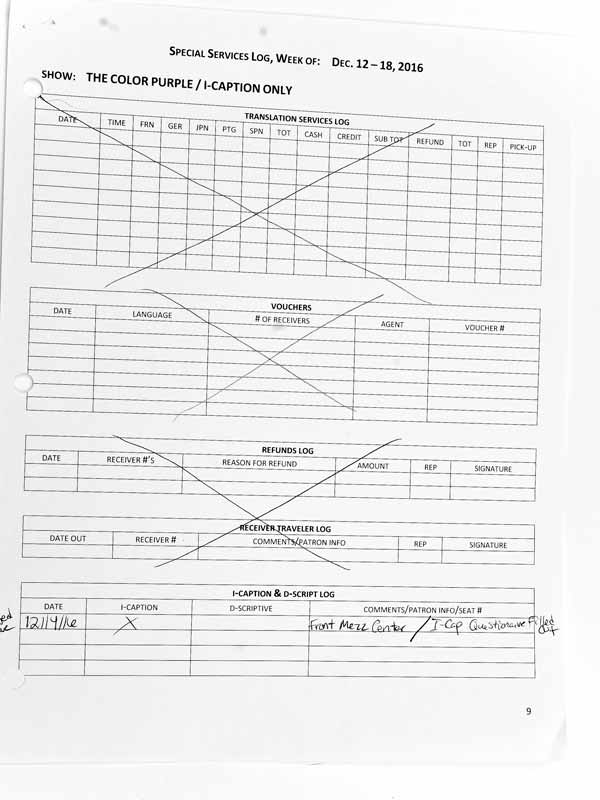 SPECIAL SERVICES LOG, WEEK OF: DEC. 12 – 18, 2016
SHOW: THE COLOR PURPLE / I-CAPTION ONLY
TRANSLATION SERVICES LOG
DATE TIME FRN GER JPN PTG SPN TOT CASH CREDIT SUB TOT REFUND TOT REP PICK-UP
VOUCHERS
DATE LANGUAGE # OF RECEIVERS AGENT VOUCHER #
REFUNDS LOG
DATE RECEIVER #'S REASON FOR REFUND AMOUNT REP SIGNATURE
RECEIVER TRAVELER LOG
DATE OUT RECEIVER # COMMENTS/PATRON INFO REP SIGNATURE
I-CAPTION & D-SCRIPT LOG
DATE I-CAPTION D-SCRIPTIVE COMMENTS/PATRON INFO/SEAT #
12/14/16 X Front Mezz Center / I-Cap Questionaire Filled out
9